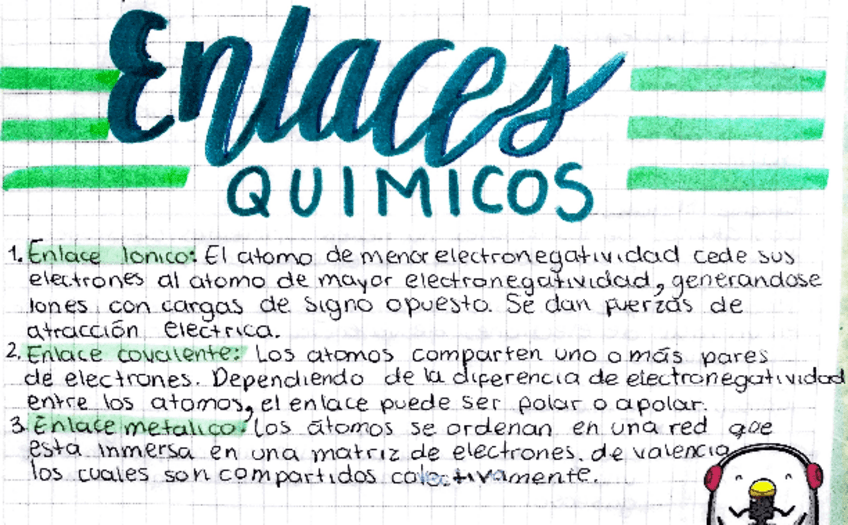 Enlaces
QUIMICOS
1. Enlace Ionico: El atomo de menor electronegatividad cede sus
electrones al atomo de mayor electronegatividad, generandose
Iones con cargas de signo opuesto. Se dan fuerzas de
atracción electrica.
2. Enlace covalente: Los atomos comparten uno o más pares
de electrones. Dependiendo de la diferencia de electronegatividad
entre los atomos, el enlace puede ser polar o apolar.
3. Enlace metalico: Los átomos se ordenan en una red que
esta inmersa en una matriz de electrones de valencia
los cuales son compartidos colectivamente.